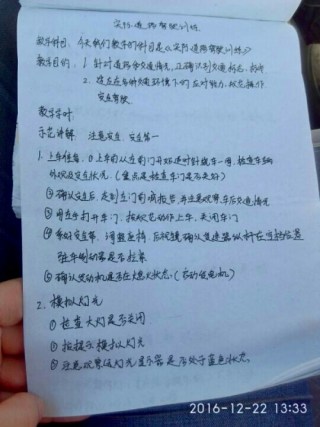 实际道路驾驶训练
教学科目：今天我们教学的科目是《实际道路驾驶训练》
教学目的：1. 针对道路各交通情况，正确识别交通标志、标线
2. 建立在各种交通环境下的应对能力、规范操作
安全驾驶
教学
示范讲解：注意安全，安全第一
1. 上车准备，①上车前从左前门开始逆时针绕车一周，检查车辆
外观及安全状况。（重点是检查车门是否关好）
②确认安全后，走到左门前报告，并注意观察车后交通情况
③用左手打开车门，按规范动作上车，关闭车门
④系好安全带，调整座椅，后视镜确认变速器纵杆在空挡位置
驻车制动器是否拉紧
⑤确认发动机是否在熄火状态。（启动发电机）
2. 模拟灯光
①检查大灯是否关闭
②按提示模拟灯光
③注意观察远灯光显示器是否处于蓝色状态。
2016-12-22 13:33